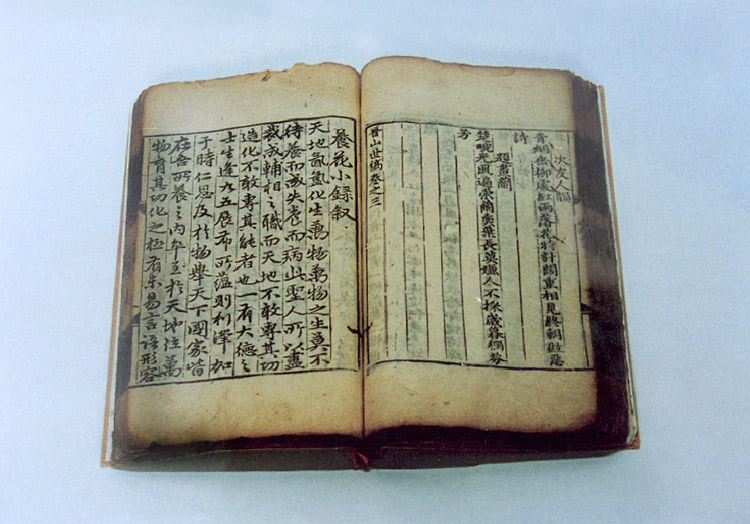 次友人韻
青烟柳處紅雨落花時計闊重相見終朝做惡
詩
題畵蘭
楚畹光風過叢蘭葉葉長莫嫌人不採歲暮獨芬
芳
晉山世稿卷之三
養花小錄叙
天地氤氳化生萬物萬物之生莫不
待養而成失養而病此聖人所以盡
裁成輔相之職而天地不敢專其功
造化不敢專其能者也一有大德之
士生逢九五展布所蘊則利澤加
于時仁恩及於物擧天下國家皆
在吾所養之內卒至於天地位萬
物育其功化之極有未易言語形容